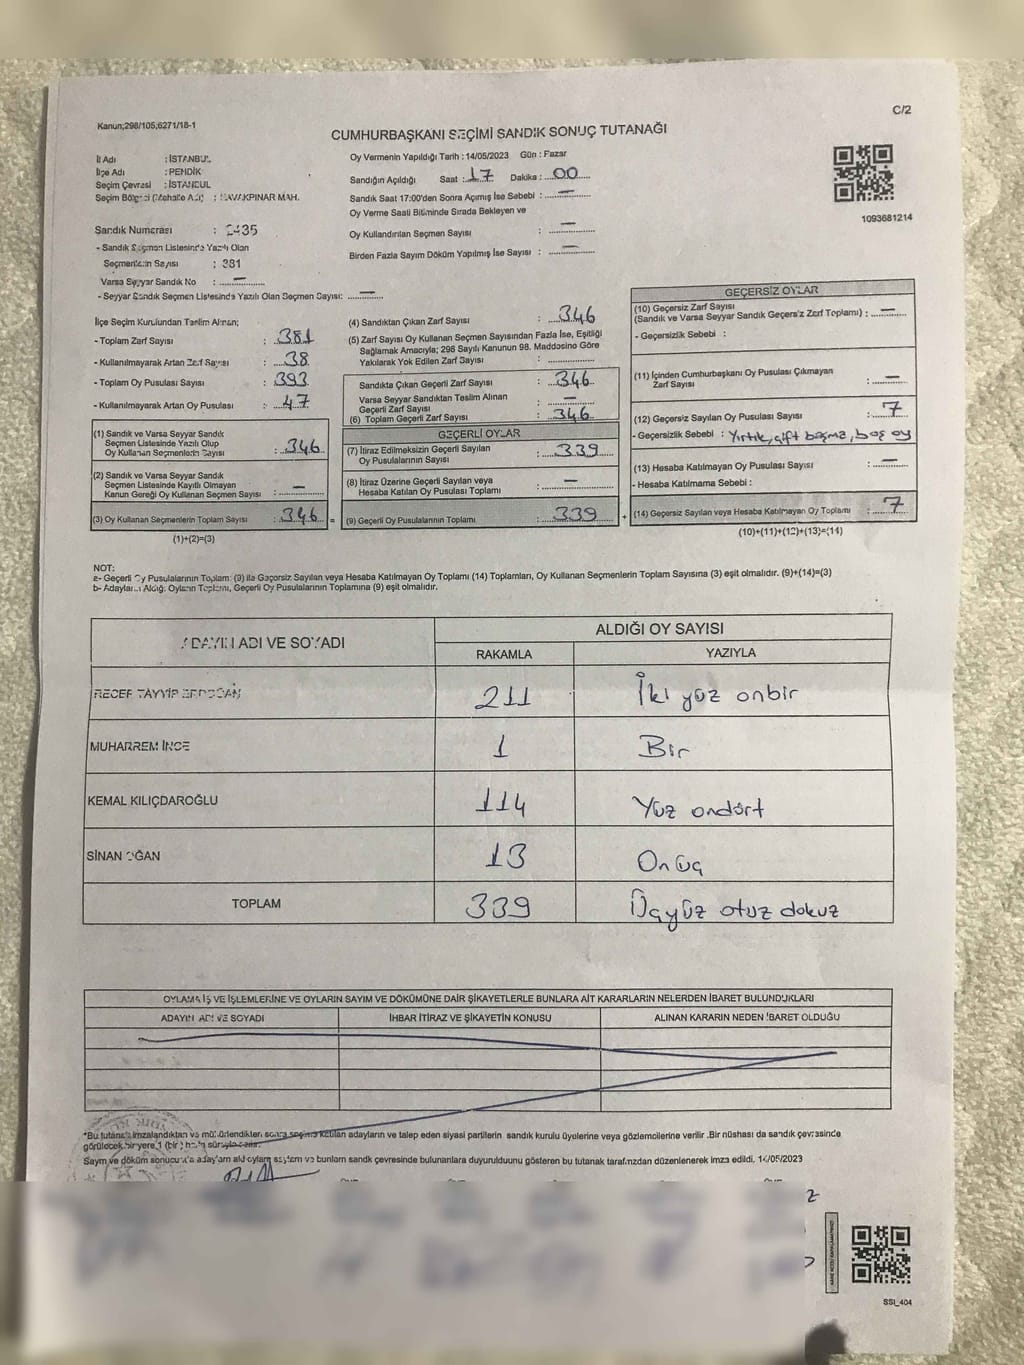 C/2
Kanun;298/105;6271/18-1
CUMHURBAŞKANI SEÇİMİ SANDIK SONUÇ TUTANAĞI
İl Adı : İSTANBUL
İlçe Adı : PENDİK
Seçim Çevresi : İSTANBUL
Seçim Bölgesi (Mahalle Adı) : KAVAKPINAR MAH.
Oy Vermenin Yapıldığı Tarih : 14/05/2023 Gün : Pazar
Sandığın Açıldığı Saat : 17 Dakika : 00
Sandık Saat 17:00'den Sonra Açımış İse Sebebi : —
Oy Verme Saati Bitiminde Sırada Bekleyen ve
Oy Kullandırılan Seçmen Sayısı : —
Birden Fazla Sayım Döküm Yapılmış İse Sayısı : —
1093681214
Sandık Numarası : 2435
- Sandık Seçmen Listesinde Yazılı Olan
Seçmenlerin Sayısı : 381
Varsa Seyyar Sandık No : —
- Seyyar Sandık Seçmen Listesinde Yazılı Olan Seçmen Sayısı: —
İlçe Seçim Kurulundan Teslim Alınan;
- Toplam Zarf Sayısı : 381
- Kullanılmayarak Artan Zarf Sayısı : 38
- Toplam Oy Pusulası Sayısı : 393
- Kullanılmayarak Artan Oy Pusulası : 47
(1) Sandık ve Varsa Seyyar Sandık
Seçmen Listesinde Yazılı Olup
Oy Kullanan Seçmenlerin Sayısı : 346
(2) Sandık ve Varsa Seyyar Sandık
Seçmen Listesinde Kayıtlı Olmayan
Kanun Gereği Oy Kullanan Seçmen Sayısı : —
(3) Oy Kullanan Seçmenlerin Toplam Sayısı : 346 =
(1)+(2)=(3)
(4) Sandıktan Çıkan Zarf Sayısı : 346
(5) Zarf Sayısı Oy Kullanan Seçmen Sayısından Fazla İse, Eşitliği
Sağlamak Amacıyla; 298 Sayılı Kanunun 98. Maddesine Göre
Yakılarak Yok Edilen Zarf Sayısı :
Sandıkta Çıkan Geçerli Zarf Sayısı : 346
Varsa Seyyar Sandıktan Teslim Alınan
Geçerli Zarf Sayısı : —
(6) Toplam Geçerli Zarf Sayısı : 346
GEÇERLİ OYLAR
(7) İtiraz Edilmeksizin Geçerli Sayılan
Oy Pusulalarının Sayısı : 339
(8) İtiraz Üzerine Geçerli Sayılan veya
Hesaba Katılan Oy Pusulası Toplamı : —
(9) Geçerli Oy Pusulalarının Toplamı : 339 +
GEÇERSİZ OYLAR
(10) Geçersiz Zarf Sayısı
(Sandık ve Varsa Seyyar Sandık Geçersiz Zarf Toplamı) : —
- Geçersizlik Sebebi :
(11) İçinden Cumhurbaşkanı Oy Pusulası Çıkmayan
Zarf Sayısı : —
(12) Geçersiz Sayılan Oy Pusulası Sayısı : 7
- Geçersizlik Sebebi : Yırtık, çift basma, boş oy
(13) Hesaba Katılmayan Oy Pusulası Sayısı : —
- Hesaba Katılmama Sebebi :
(14) Geçersiz Sayılan veya Hesaba Katılmayan Oy Toplamı : 7
(10)+(11)+(12)+(13)=(14)
NOT:
a- Geçerli Oy Pusulalarının Toplamı (9) ile Geçersiz Sayılan veya Hesaba Katılmayan Oy Toplamı (14) Toplamları, Oy Kullanan Seçmenlerin Toplam Sayısına (3) eşit olmalıdır. (9)+(14)=(3)
b- Adayların Aldığı Oyların Toplamı, Geçerli Oy Pusulalarının Toplamına (9) eşit olmalıdır.
ADAYIN ADI VE SOYADI
ALDIĞI OY SAYISI
RAKAMLA YAZIYLA
RECEP TAYYİP ERDOĞAN 211 İki yüz onbir
MUHARREM İNCE 1 Bir
KEMAL KILIÇDAROĞLU 114 Yüz ondört
SİNAN OĞAN 13 Onüç
TOPLAM 339 Üçyüz otuz dokuz
OYLAMA İŞ VE İŞLEMLERİNE VE OYLARIN SAYIM VE DÖKÜMÜNE DAİR ŞİKAYETLERLE BUNLARA AİT KARARLARIN NELERDEN İBARET BULUNDUKLARI
ADAYIN ADI VE SOYADI İHBAR İTİRAZ VE ŞİKAYETİN KONUSU ALINAN KARARIN NEDEN İBARET OLDUĞU
*Bu tutanak imzalandıktan ve mühürlendikten sonra seçime katılan adayların ve talep eden siyasi partilerin sandık kurulu üyelerine veya gözlemcilerine verilir. Bir nüshası da sandık çevresinde
görülecek bir yere 1 (bir) hafta süreyle asılır.
Sayım ve döküm sonucunda adayların aldıkları oyların sayısını ve bunların sandık çevresinde bulunanlara duyurulduğunu gösteren bu tutanak tarafımızdan düzenlenerek imza edildi. 14/05/2023
SSI_404